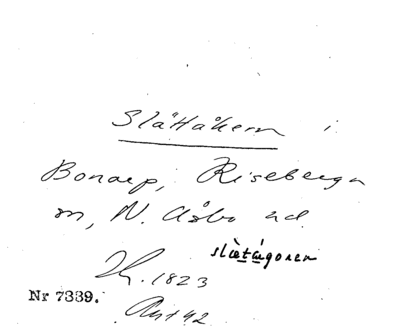 Slättåkern i
Bonarp, Riseberga
sn, N. Åsbo hd.
slätågoren
1823
Nr 7339.
42